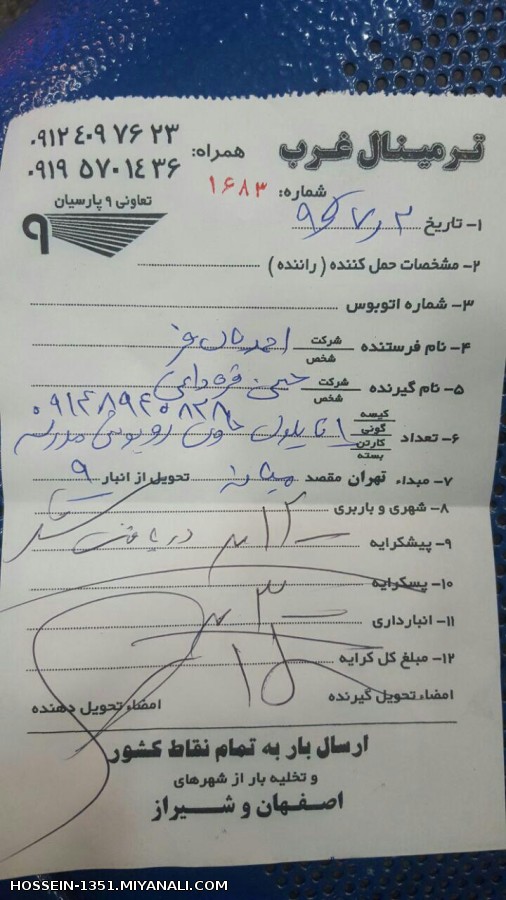 ترمینال غرب
همراه: ۰۹۱۲ ۴۰۹ ۷۶ ۲۳
۰۹۱۹ ۵۷۰ ۱۴ ۳۶
شماره: ۱۶۸۳
تعاونی ۹ پارسیان
۹
۱- تاریخ
۲- مشخصات حمل کننده ( راننده )
۳- شماره اتوبوس
۴- نام فرستنده شرکت شخص احمد
۵- نام گیرنده شرکت شخص
۶- تعداد کیسه گونی کارتن بسته
۷- مبداء تهران مقصد میانه تحویل از انبار ۹
۸- شهری و باربری
۹- پیشکرایه ۱۲ دریافت شد
۱۰- پسکرایه
۱۱- انبارداری ۳
۱۲- مبلغ کل کرایه ۱۵
امضاء تحویل گیرنده امضاء تحویل دهنده
ارسال بار به تمام نقاط کشور
و تخلیه بار از شهرهای
اصفهان و شیراز
HOSSEIN-1351.MIYANALI.COM